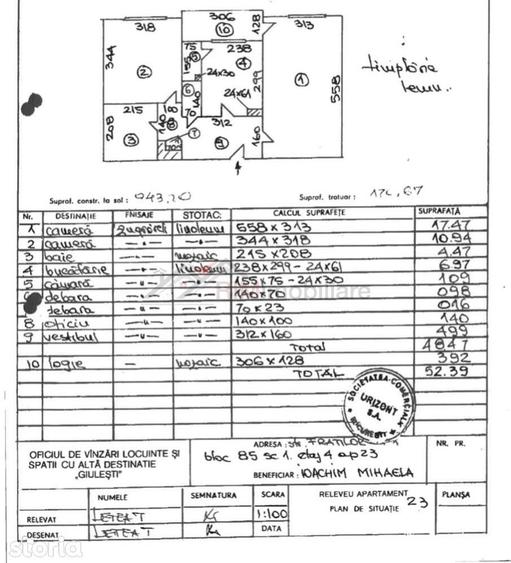 318
306
10
128
313
344
2
75
5
238
4
155
24x30
299
1
558
6
140
24x61
215
100
70
312
208
3
140
8
7
9
160
70
tîmplărie
lemn
Supraf. constr. la sol: 943,20 Supraf. trotuar:
Nr. DESTINAȚIE FINISAJE STOTAC. CALCUL SUPRAFEȚE SUPRAFAȚĂ
1 cameră zugrăveli linoleum 558 x 313 17.47
2 cameră —"— —"— 344 x 318 10.94
3 baie —"— mozaic 215 x 208 4.47
4 bucătărie —"— linoleum 238 x 299 - 24x61 6.97
5 cămară —"— —"— 155 x 75 - 24x30 1.09
6 debara —"— —"— 140 x 70 0.98
debara —"— —"— 70 x 23 0.16
8 oficiu —"— —"— 140 x 100 1.40
9 vestibul —"— —"— 312 x 160 4.99
Total 48.47
10 logie — mozaic 306 x 128 3.92
TOTAL 52.39
imobiliare
SOCIETATEA COMERCIALĂ
URIZONT
S.A.
BUCUREȘTI
OFICIUL DE VÎNZĂRI LOCUINȚE ȘI
SPATII CU ALTĂ DESTINATIE
"GIULEȘTI"
ADRESA: str. FRATILOR
bloc 85 sc 1. etaj 4 ap 23
BENEFICIAR: IOACHIM MIHAELA
NR. PR.
NUMELE SEMNATURA SCARA RELEVEU APARTAMENT 23 PLANȘA
1:100 PLAN DE SITUAȚIE
RELEVAT
DATA
DESENAT
storia